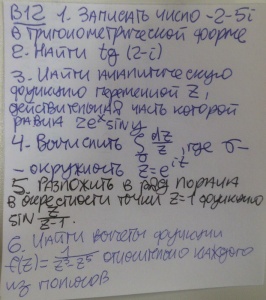 В12 1. Записать число -2-5i
в тригонометрической форме
2. Найти tg (2-i)
3. Найти аналитическую
функцию переменной z,
действительная часть которой
равна 2eˣ sin y
4. Вычислить ∮ dz/z, где σ-
- окружность z=e^{it}
5. Разложить в ряд Лорана
в окрестности точки z=1 функцию
sin z/(z-1).
6. Найти вычеты функции
f(z)= 1/(z³-z⁵) относительно каждого
из полюсов